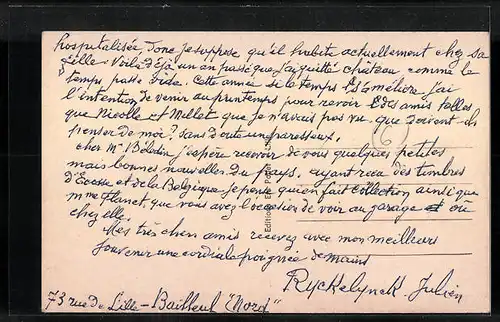 hospitalisée, Donc Je suppose qu'il habite actuellement chez sa
fille. Voilà déjà un an passé que J'ai quitté château, comme le
temps passe vide. Cette année si le temps J'ai
l'intention de venir au printemps pour revoir amis telles
que Nicolle et Millet que Je n'avais pas vu que doivent-ils
penser de moi? Sans doute un paresseux.
cher Mr J'espère recevoir de vous quelques petites
mais bonnes nouvelles du pays. ayant reçu des timbres
d'Ecosse et de la Belgique, Je pense qui en fait collection ainsi que
mme Planet que vous avez l'occasion de voir au garage et où
chez elle.
Mes très chers amis recevez avec mon meilleurs
Souvenir une cordiale poignée de mains
Ryckelynck Julien
73 rue de Lille - Bailleul "Nord"